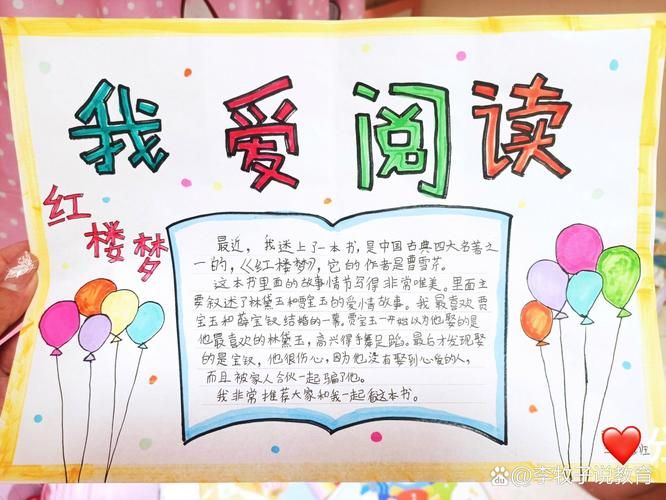 我爱阅读
红楼梦
最近，我迷上了一本书，是中国古典四大名著之
一的，《红楼梦》，它的作者是曹雪芹。
这本书里面的故事情节写得非常唯美。里面主
要叙述了林黛玉和贾宝玉的爱情故事。我最喜欢贾
宝玉和薛宝钗结婚的一幕。贾宝玉一开始认为他娶的是
他最喜欢的林黛玉，高兴得手舞足蹈。最后才发现娶
的是宝钗，他很伤心，因为他没有娶到心爱的人，
而且被家人合伙一起骗了他。
我非常推荐大家和我一起看这本书。
班
Baidu 百科 @李牧子说教育